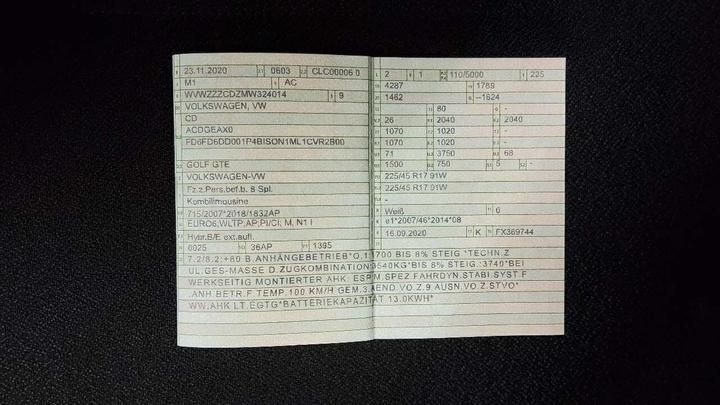 23.11.2020 0603 CLC00006 0
M1 AC
WVWZZZCDZMW324014 9
VOLKSWAGEN, VW
CD
ACDGEAX0
FD6FD6DD001P4BISON1ML1CVR2B00
GOLF GTE
VOLKSWAGEN-VW
Fz.z.Pers.bef.b. 8 Spl.
Kombilimousine
715/2007*2018/1832AP
EURO6;WLTP;AP;PI/CI; M, N1 I
Hybr.B/E ext.aufl.
0025 36AP 1395
2 1 110/5000 225
4287 1789
1462 --1624
80 -
26 2040 2040
1070 1020 -
1070 1020 -
71 3750 68
1500 750 5 -
225/45 R17 91W
225/45 R17 91W
-
Weiß 0
e1*2007/46*2014*08
16.09.2020 K FX369744
7.2/8.2:+80 B.ANHÄNGEBETRIEB*O.1:1700 BIS 8% STEIG.*TECHN.Z
UL.GES-MASSE D.ZUGKOMBINATION:3540KG*BIS 8% STEIG.:3740*BEI
WERKSEITIG MONTIERTER AHK: ESP M.SPEZ.FAHRDYN.STABI.SYST.F
.ANH.BETR.F.TEMP.100 KM/H GEM.3.AEND.VO.Z.9.AUSN.VO.Z.STVO*
WW.AHK LT.EGTG*BATTERIEKAPAZITÄT 13.0KWH*